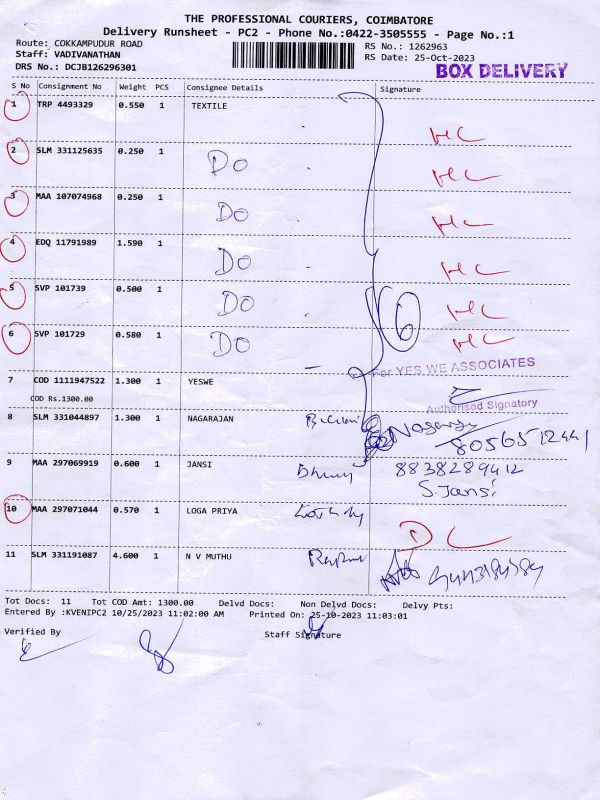 THE PROFESSIONAL COURIERS, COIMBATORE
Delivery Runsheet - PC2 - Phone No.:0422-3505555 - Page No.:1
Route: COKKAMPUDUR ROAD
RS No.: 1262963
Staff: VADIVANATHAN
RS Date: 25-Oct-2023
DRS No.: DCJB126296301
BOX DELIVERY
S No Consignment No Weight PCS Consignee Details Signature
1 TRP 4493329 0.550 1 TEXTILE
2 SLM 331125635 0.250 1 DO
3 MAA 107074968 0.250 1 DO
4 EDQ 11791989 1.590 1 DO
5 SVP 101739 0.500 1 DO
6 SVP 101729 0.580 1 DO
6
For YES WE ASSOCIATES
7 COD 1111947522 1.300 1 YESWE
COD Rs.1300.00
Authorised Signatory
8 SLM 331044897 1.300 1 NAGARAJAN
8056512441
9 MAA 297069919 0.600 1 JANSI 8838289412
S.Jansi
10 MAA 297071044 0.570 1 LOGA PRIYA
11 SLM 331191087 4.600 1 N V MUTHU
Tot Docs: 11 Tot COD Amt: 1300.00 Delvd Docs: Non Delvd Docs: Delvy Pts:
Entered By :KVENIPC2 10/25/2023 11:02:00 AM Printed On: 25-10-2023 11:03:01
Verified By Staff Signature